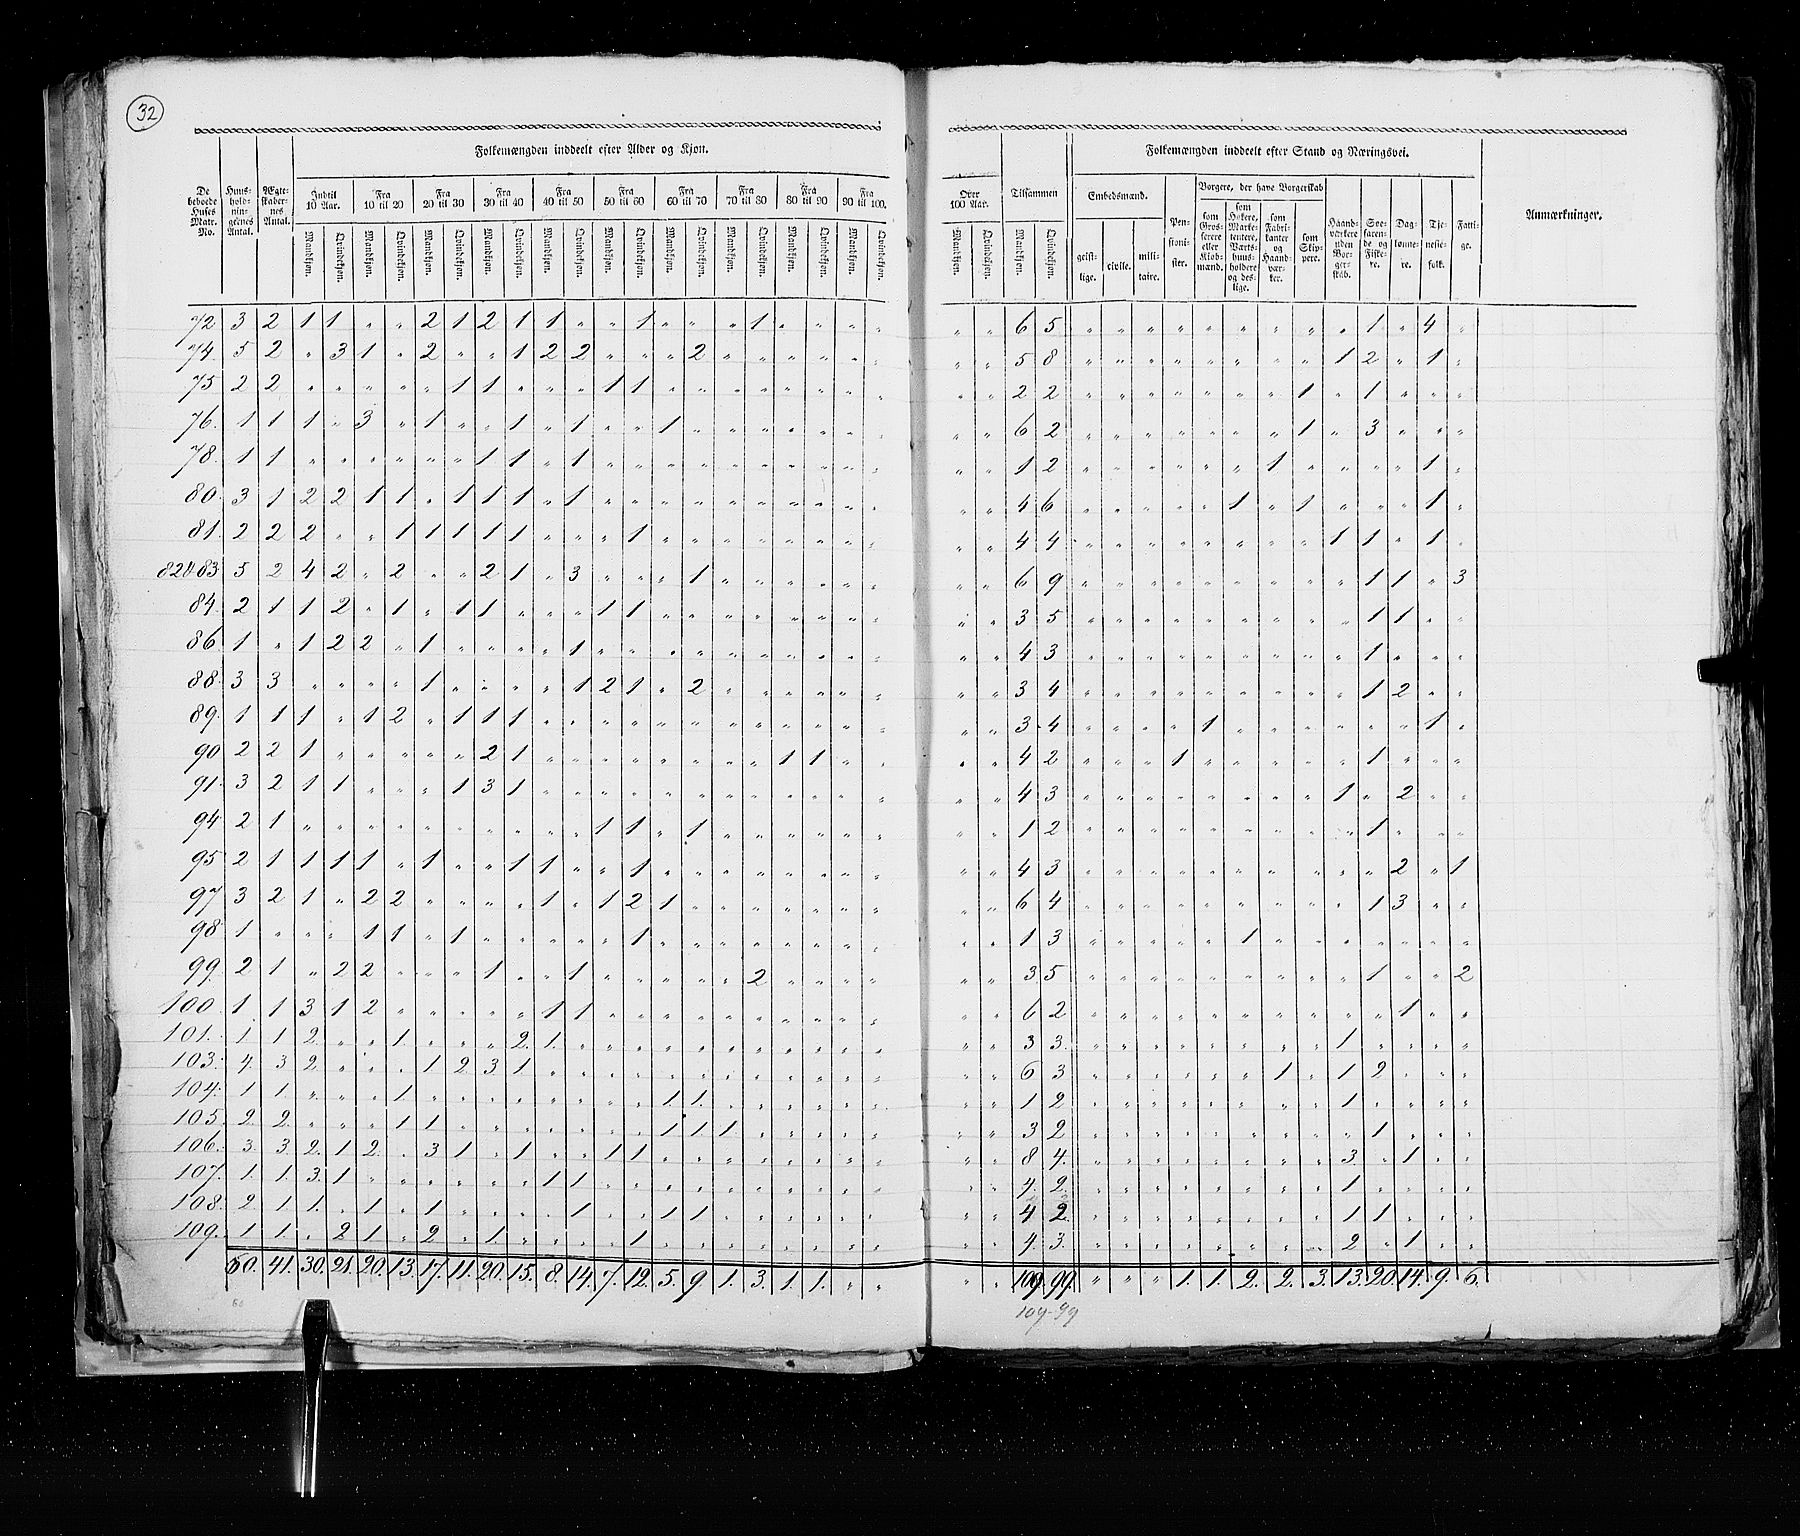 32
Folkemængden inddeelt efter Alder og Kjøn.
De beboede Huses Matr. No.
Huus-hold-nin-gernes Antal.
Ægte-skaber-nes Antal.
Indtil 10 Aar.
Fra 10 til 20
Fra 20 til 30
Fra 30 til 40
Fra 40 til 50
Fra 50 til 60
Fra 60 til 70
Fra 70 til 80
Fra 80 til 90
Fra 90 til 100.
Mandkjøn. Qvindekjøn. Mandkjøn. Qvindekjøn. Mandkjøn. Qvindekjøn. Mandkjøn. Qvindekjøn. Mandkjøn. Qvindekjøn. Mandkjøn. Qvindekjøn. Mandkjøn. Qvindekjøn. Mandkjøn. Qvindekjøn. Mandkjøn. Qvindekjøn. Mandkjøn. Qvindekjøn.
Folkemængden inddeelt efter Stand og Næringsvei.
Over 100 Aar.
Tilsammen
Mandkjøn. Qvindekjøn. Mandkjøn. Qvindekjøn.
Embedsmænd.
geist-lige. civile. mili-taire.
Pen-sioni-ster.
Borgere, der have Borgerskab
som Gros-serere eller Kiøb-mænd.
som Høkere, Marke-tentere, Værts-huus-holdere og des-lige.
som Fabri-kanter og Haand-vær-ker.
som Skip-pere.
Haand-værkere uden Bor-ger-skab.
Søe-faren-de og Fiske-re.
Dag-lønne-re.
Tje-neste-folk.
Fatti-ge.
Anmærkninger.
72 3 2 1 1 " " 2 1 2 1 1 " " 1 " " " 1 " " " " " " 6 5 " " " " " " " " " 1 " 4 "
74 5 2 " 3 1 " 2 " " 1 2 2 " " " 2 " " " " " " " " 5 8 " " " " " " " " 1 2 " 1 "
75 2 2 " " " " " 1 1 " " " 1 1 " " " " " " " " " " 2 2 " " " " " " " 1 " 1 " " "
76. 1 1 1 " 3 " 1 " " 1 " 1 " " 1 " " " " " " " " " 6 2 " " " " " " " 1 " 3 " " "
78. 1 1 " " " " " " 1 1 " 1 " " " " " " " " " " " " 1 2 " " " " " " 1 " " " " 1 "
80. 3 1 2 2 1 1 " 1 1 1 " 1 " " " " " " " " " " " " 4 6 " " " " " 1 " 1 " " " 1 "
81. 2 2 2 " " 1 1 1 1 1 " " " 1 " " " " " " " " " " 4 4 " " " " " " " " 1 1 " 1 "
82&83 5 2 4 2 " 2 " " 2 1 " 3 " " " 1 " " " " " " " " 6 9 " " " " " " " " " 1 1 " 3
84. 2 1 1 2 " 1 " 1 1 " " " 1 1 " " " " " " " " " " 3 5 " " " " " " " " " 1 1 " "
86 1 " 1 2 2 " 1 " " " " 1 " " " " " " " " " " " " 4 3 " " " " " " " " " 1 " " "
88. 3 3 " " " " 1 " " " " 1 2 1 " 2 " " " " " " " " 3 4 " " " " " " " " " 1 2 " "
89. 1 1 1 " 1 2 " 1 1 1 " " " " " " " " " " " " " " 3 4 " " " " 1 " " " " " " 1 "
90 2 2 1 " " " " " 2 1 " " " " " " " " 1 1 " " " " 4 2 " " " 1 " " " " " 1 " " "
91. 3 2 1 1 " " " 1 3 1 " " " " " " " " " " " " " " 4 3 " " " " " " " " 1 " 2 " "
94 2 1 " " " " " " " " " " 1 1 " 1 " " " " " " " " 1 2 " " " " " " " " " 1 " " "
95 2 1 1 1 1 " 1 " " 1 1 " " 1 " " " " " " " " " " 4 3 " " " " " " " " " " 2 " 1
97 3 2 1 " 2 2 " " " " 1 " 1 2 1 " " " " " " " " " 6 4 " " " " " " " " " 1 3 " "
98 1 " " " 1 1 " 1 " " " " " 1 " " " " " " " " " " 1 3 " " " " " 1 " " " " " " "
99. 2 1 " 2 2 " " " 1 " " 1 " " " " " 2 " " " " " " 3 5 " " " " " " " " " 1 " " 2
100. 1 1 3 1 2 " " " " " 1 1 " " " " " " " " " " " " 6 2 " " " " " " " " " " 1 " "
101. 1 1 2 " " 1 " " " 2 1 " " " " " " " " " " " " " 3 3 " " " " " " " " 1 " " " "
103. 4 3 2 " " " 1 2 3 1 " " " " " " " " " " " " " " 6 3 " " " " " " 1 " 1 2 " " "
104. 1 1 " " " 1 " " " " " " " " 1 1 " " " " " " " " 1 2 " " " " " " " " 1 " " " "
105. 2 2 " " " 1 1 " " " " " " " 1 1 1 " " " " " " " 3 2 " " " " " " " " " 1 " " "
106. 3 3 2 1 2 " 3 1 " 1 " " 1 1 " " " " " " " " " " 8 4. " " " " " " " " 3 " 1 " "
107. 1 1 3 1 " " " " " " 1 1 " " " " " " " " " " " " 4 2. " " " " " " " " 1 " " " "
108. 2 1 1 " 1 " 1 " " " " 1 " " 1 1 " " " " " " " " 4 2 " " " " " " " " 1 1 " " "
109. 1 1 " 2 1 " 2 " 1 " " " " 1 " " " " " " " " " " 4 3. " " " " " " " " 2 " 1 " "
60. 41. 30. 21. 20. 13. 17. 11. 20. 15. 8. 14. 7. 12. 5. 9. 1. 3. 1. 1. " " " " 109 99. " " " 1. 1. 2. 2. 3. 13. 20. 14. 9. 6.
60
109-99